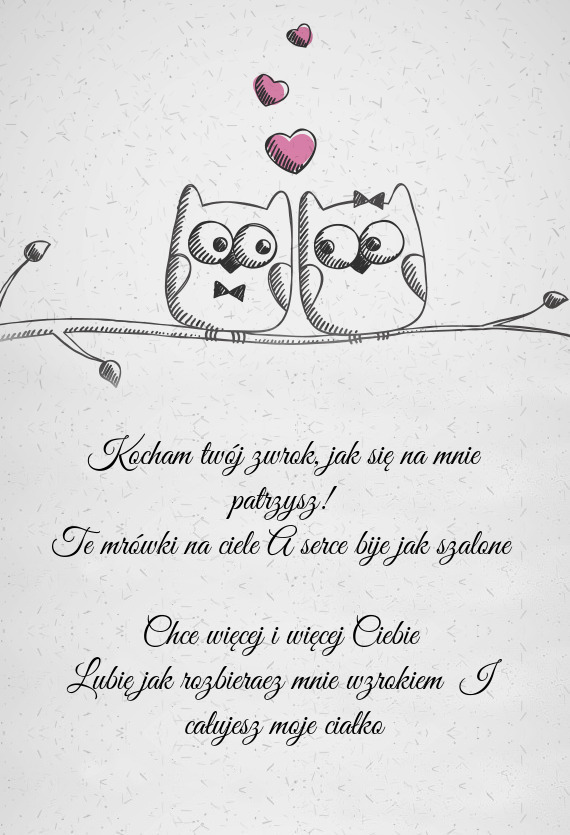 Kocham twój zwrok, jak się na mnie
patrzysz!
Te mrówki na ciele A serce bije jak szalone
Chce więcej i więcej Ciebie
Lubię jak rozbieraez mnie wzrokiem I
całujesz moje ciałko